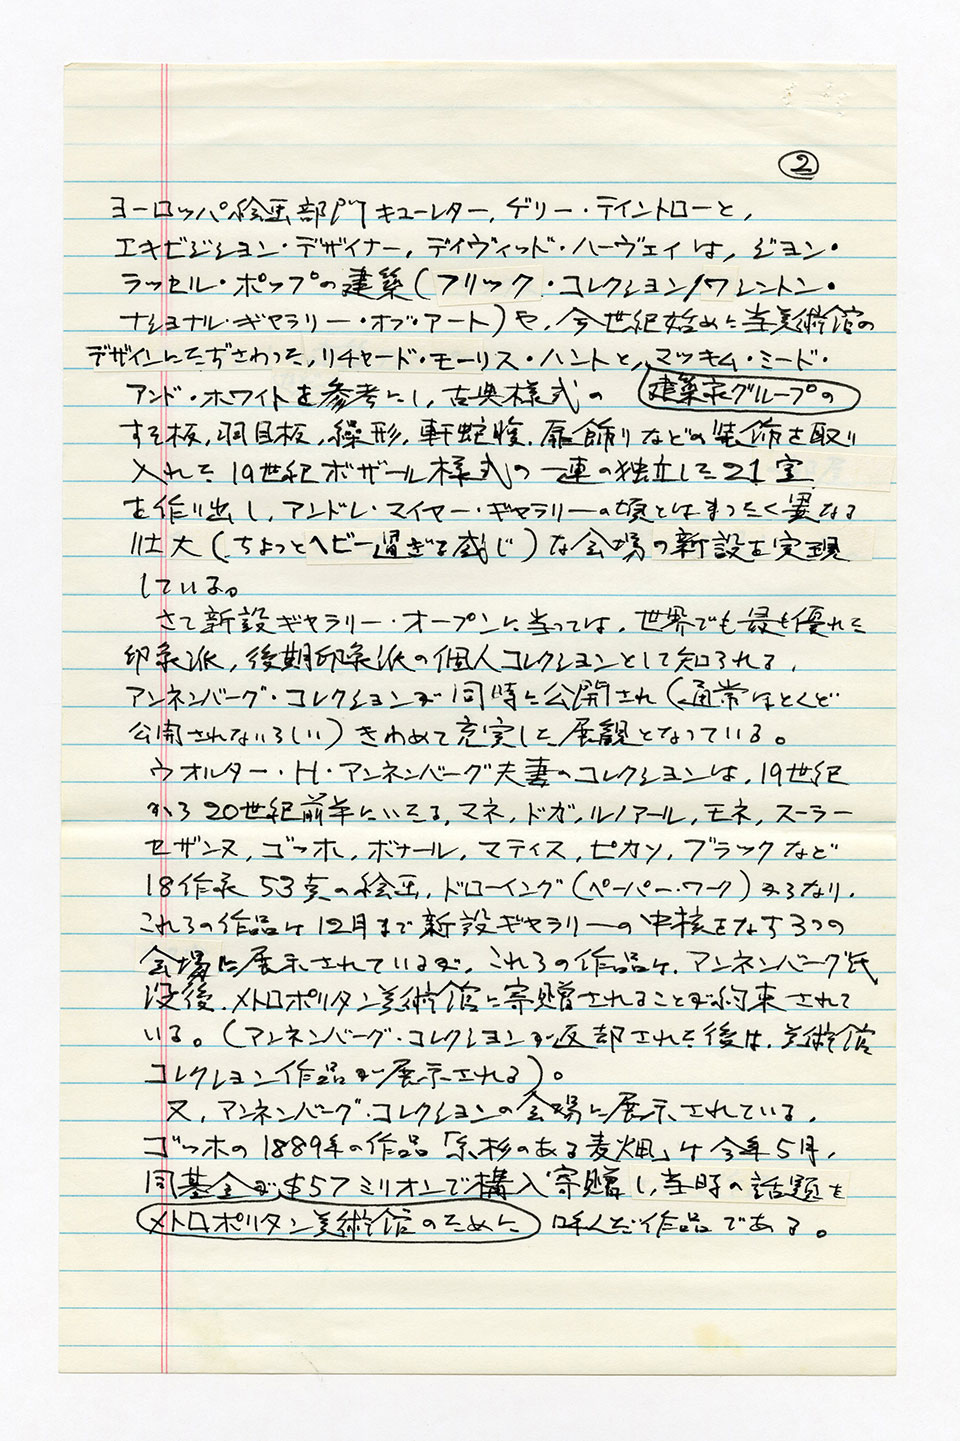 ②
ヨーロッパ絵画部門キューレター,ゲリー・テイントローと,
エキビジション・デザイナー,デイヴィッド・ハーヴェイは,ジョン・
ラッセル・ポップの建築(フリック・コレクション/ワシントン・
ナショナル・ギャラリー・オブ・アート)や,今世紀始めに当美術館の
デザインにたずさわった,リチャード・モーリス・ハントと,マッキム・ミード・
アンド・ホワイトを参考にし,古典様式の 建築家グループの
すそ板,羽目板,繰形,軒蛇腹,扉飾りなどの装飾を取り
入れた19世紀ボザール様式の一連の独立した21室
を作り出し,アンドレ・マイヤー・ギャラリーの頃とはまったく異なる
壮大(ちょっとヘビー過ぎる感じ)な会場の新設を実現
している。
さて新設ギャラリー・オープンに当っては,世界でも最も優れた
印象派,後期印象派の個人コレクションとして知られる,
アンネンバーグ・コレクションが同時に公開され(通常はとくど
公開されないらしい)きわめて充実した展観となっている。
ウオルター・H・アンネンバーグ夫妻のコレクションは,19世紀
から20世紀前半にいたる,マネ,ドガ,ルノアール,モネ,スーラー
セザンヌ,ゴッホ,ボナール,マティス,ピカソ,ブラックなど
18作家53点の絵画,ドローイング(ペーパー・ワーク)からなり,
これらの作品は12月まで新設ギャラリーの中核をなす3つの
会場に展示されているが,これらの作品は,アンネンバーグ氏
没後,メトロポリタン美術館に寄贈されることが約束されて
いる。(アンネンバーグ・コレクションが返却された後は,美術館
コレクション作品が展示される)。
又,アンネンバーグ・コレクションの会場に展示されている,
ゴッホの1889年の作品「糸杉のある麦畑」は今年5月,
同基金が$57ミリオンで購入寄贈し,当時の話題を
メトロポリタン美術館のために 呼んだ作品である。